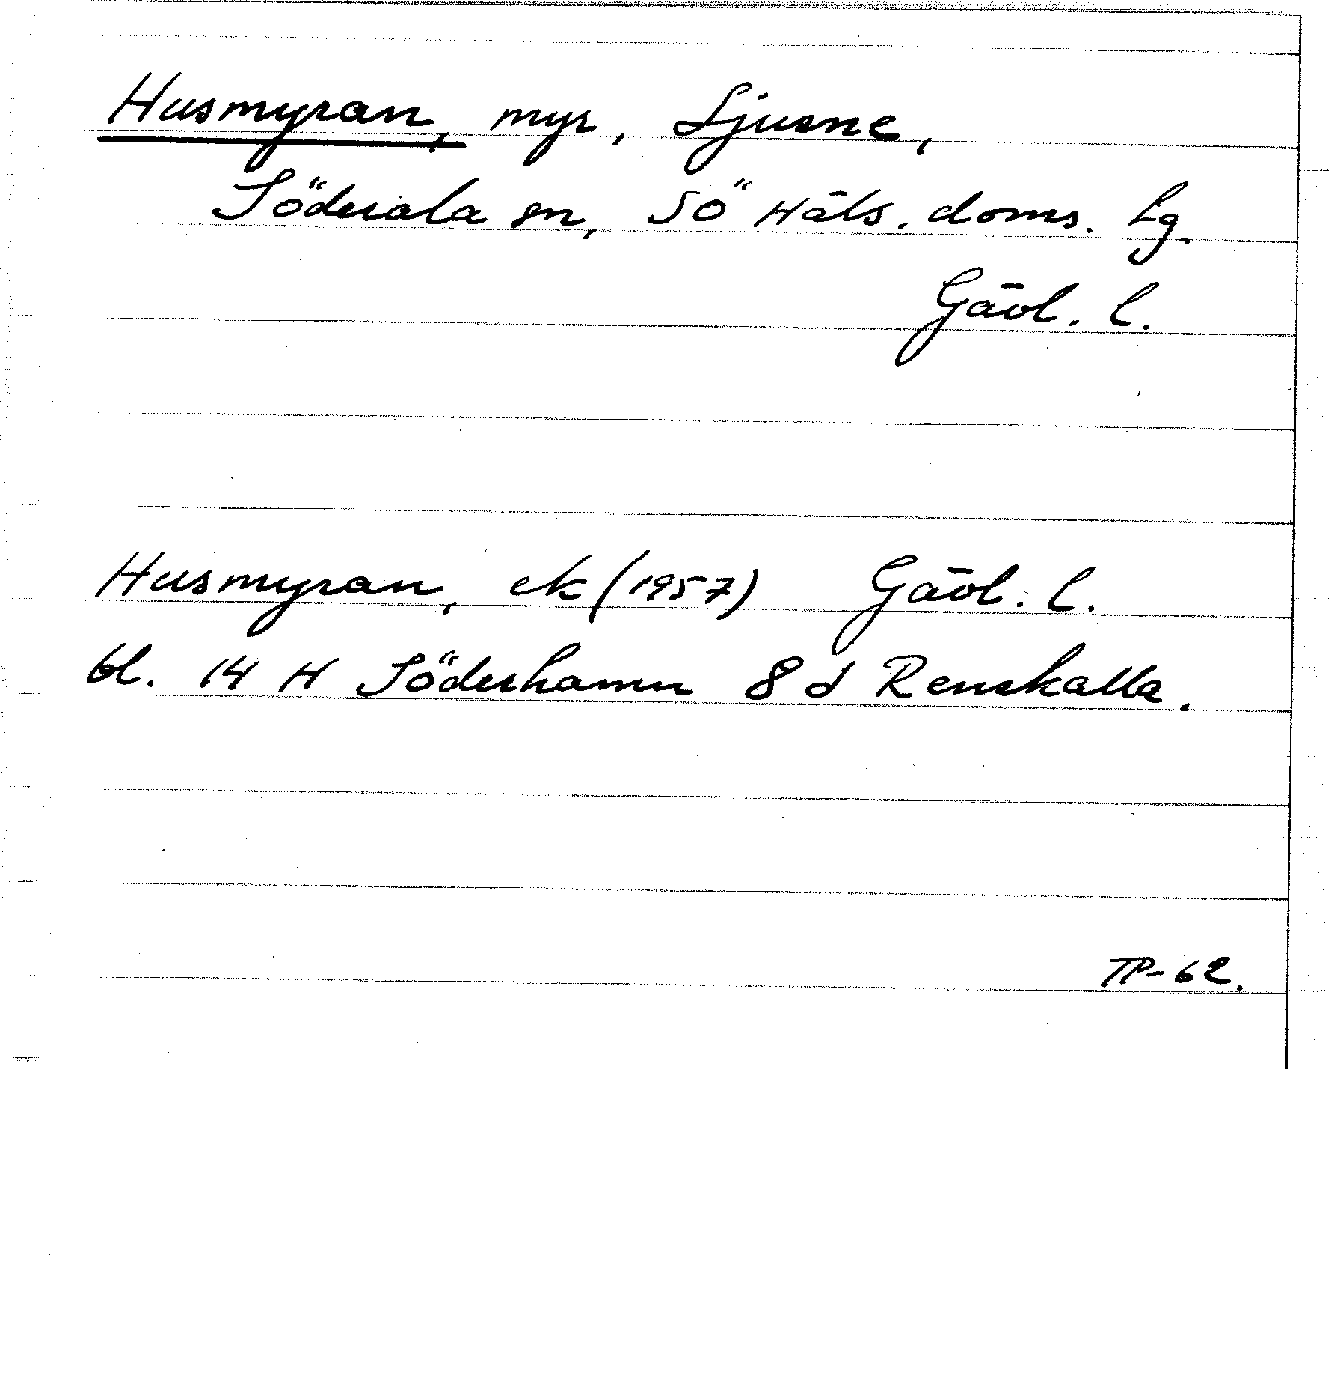 Husmyran, myr, Ljusne,
Söderala sn, Sö Häls. doms. Lg.
Gävl. l.
Husmyran, ek (1957) Gävl. l.
bl. 14 H Söderhamn 8 d Renskalla.
TP-62.